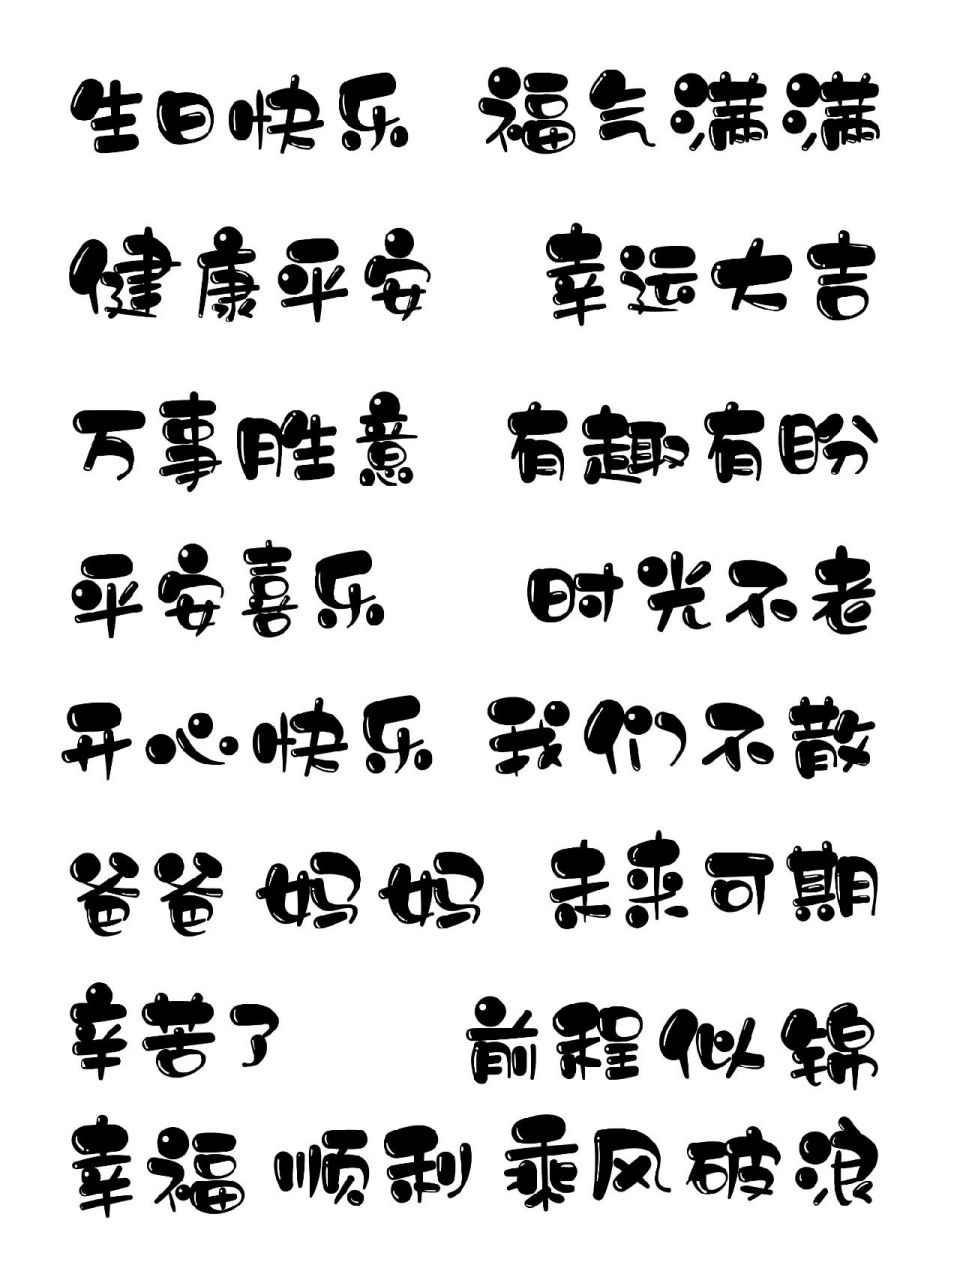 生日快乐 福气满满
健康平安 幸运大吉
万事胜意 有趣有盼
平安喜乐 时光不老
开心快乐 我们不散
爸爸 妈妈 未来可期
辛苦了 前程似锦
幸福 顺利 乘风破浪